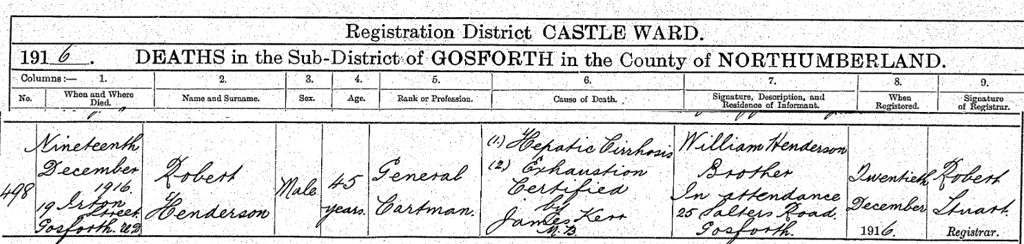 Registration District CASTLE WARD.
1916. DEATHS in the Sub-District of GOSFORTH in the County of NORTHUMBERLAND.
Columns:— 1. 2. 3. 4. 5. 6. 7. 8. 9.
No. When and Where Died. Name and Surname. Sex. Age. Rank or Profession. Cause of Death. Signature, Description, and Residence of Informant. When Registered. Signature of Registrar.
498
Nineteenth
December
1916.
19 Irton
Street
Gosforth. U.D
Robert
Henderson
Male
45
years.
General
Cartman.
(1) Hepatic Cirrhosis
(2) Exhaustion
Certified
by
James Kerr
M.B.
William Henderson
Brother
In attendance
25 Salters Road.
Gosforth.
Twentieth
December
1916.
Robert
Stuart.
Registrar.